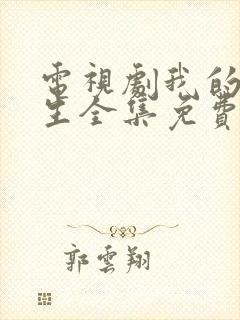 電視劇我的
生全集免費
郭雲翔